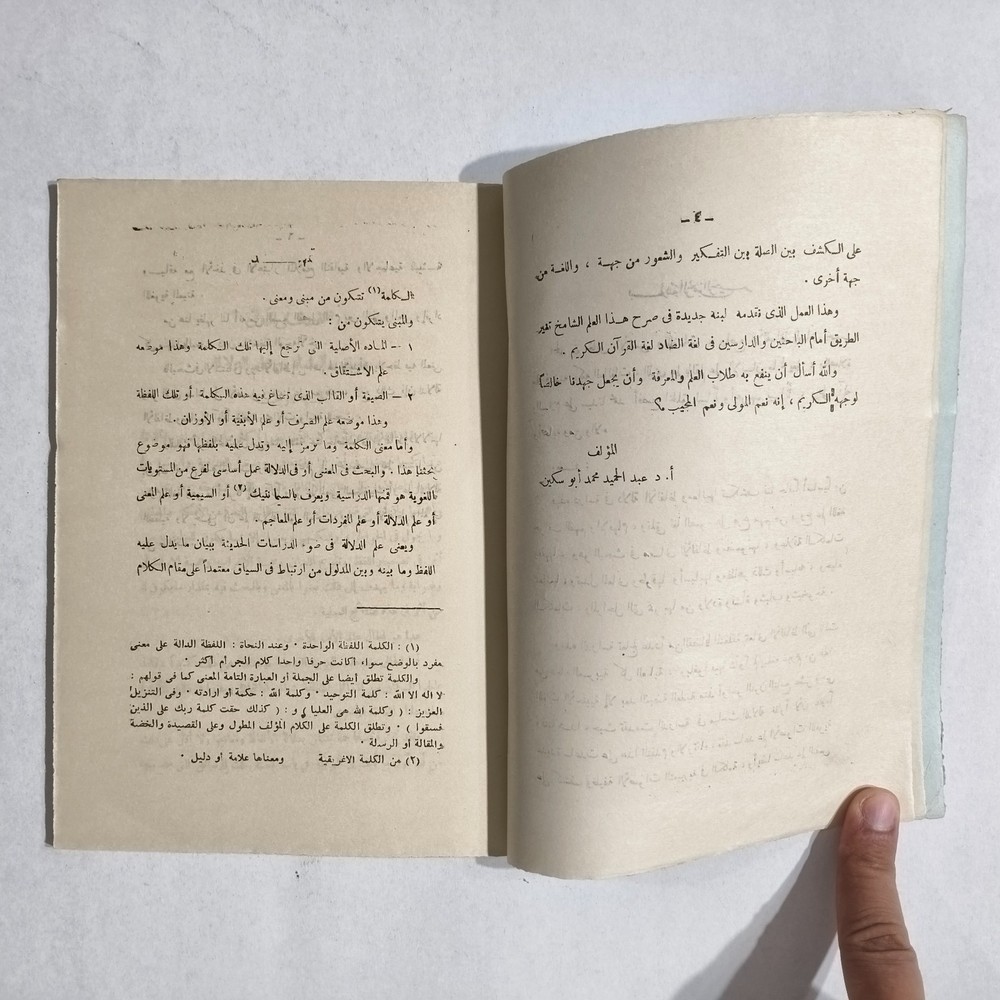 — ٤ —
على الكشف بين الصلة بين التفكير والشعور من جهة ، واللغة من
جهة أخرى .
وهذا العمل الذى نقدمه لبنة جديدة فى صرح هذا العلم الشامخ تنير
الطريق أمام الباحثين والدارسين فى لغة الضاد لغة القرآن الكريم .
والله أسأل أن ينفع به طلاب العلم والمعرفة وأن يجعل جهدنا خالصًا
لوجهه الكريم ، إنه نعم المولى ونعم المجيب ؟
المؤلف
أ. د عبد الحميد محمد أبو سكين
تمهيد
الكلمة(١) تتكون من مبنى ومعنى .
والمبنى يتكون من :
١ - المادة الأصلية التى ترجع إليها تلك الكلمة وهذا موضعه
علم الاشتقاق .
٢ - الصيغة أو القالب الذى تصاغ فيه هذه الكلمة أو تلك اللفظة
وهذا موضعه علم الصرف أو علم الأبنية أو الأوزان .
وأما معنى الكلمة وما ترمز إليه وتدل عليه بلفظها فهو موضوع
بحثنا هذا . والبحث فى المعنى أو فى الدلالة عمل أساسى لفرع من المستويات
اللغوية هو قمتها الدراسية ويعرف بالسيمانتيك (٢) أو السيمية أو علم المعنى
أو علم الدلالة أو علم المفردات أو علم المعاجم .
ويعنى علم الدلالة فى ضوء الدراسات الحديثة ببيان ما يدل عليه
اللفظ وما بينه وبين المدلول من ارتباط فى السياق معتمداً على مقام الكلام
(١) : الكلمة اللفظة الواحدة · وعند النحاة : اللفظة الدالة على معنى
مفرد بالوضع سواء أكانت حرفا واحدا كلام الجر أم أكثر ·
والكلمة تطلق أيضا على الجملة أو العبارة التامة المعنى كما فى قولهم :
لا اله الا الله : كلمة التوحيد · وكلمة الله : حكمة أو ارادته · وفى التنزيل
العزيز : ( وكلمة الله هى العليا ) و : ( كذلك حقت كلمة ربك على الذين
فسقوا ) · وتطلق الكلمة على الكلام المؤلف المطول وعلى القصيدة والخطبة
والمقالة أو الرسالة ·
(٢) من الكلمة الاغريقية ومعناها علامة أو دليل ·